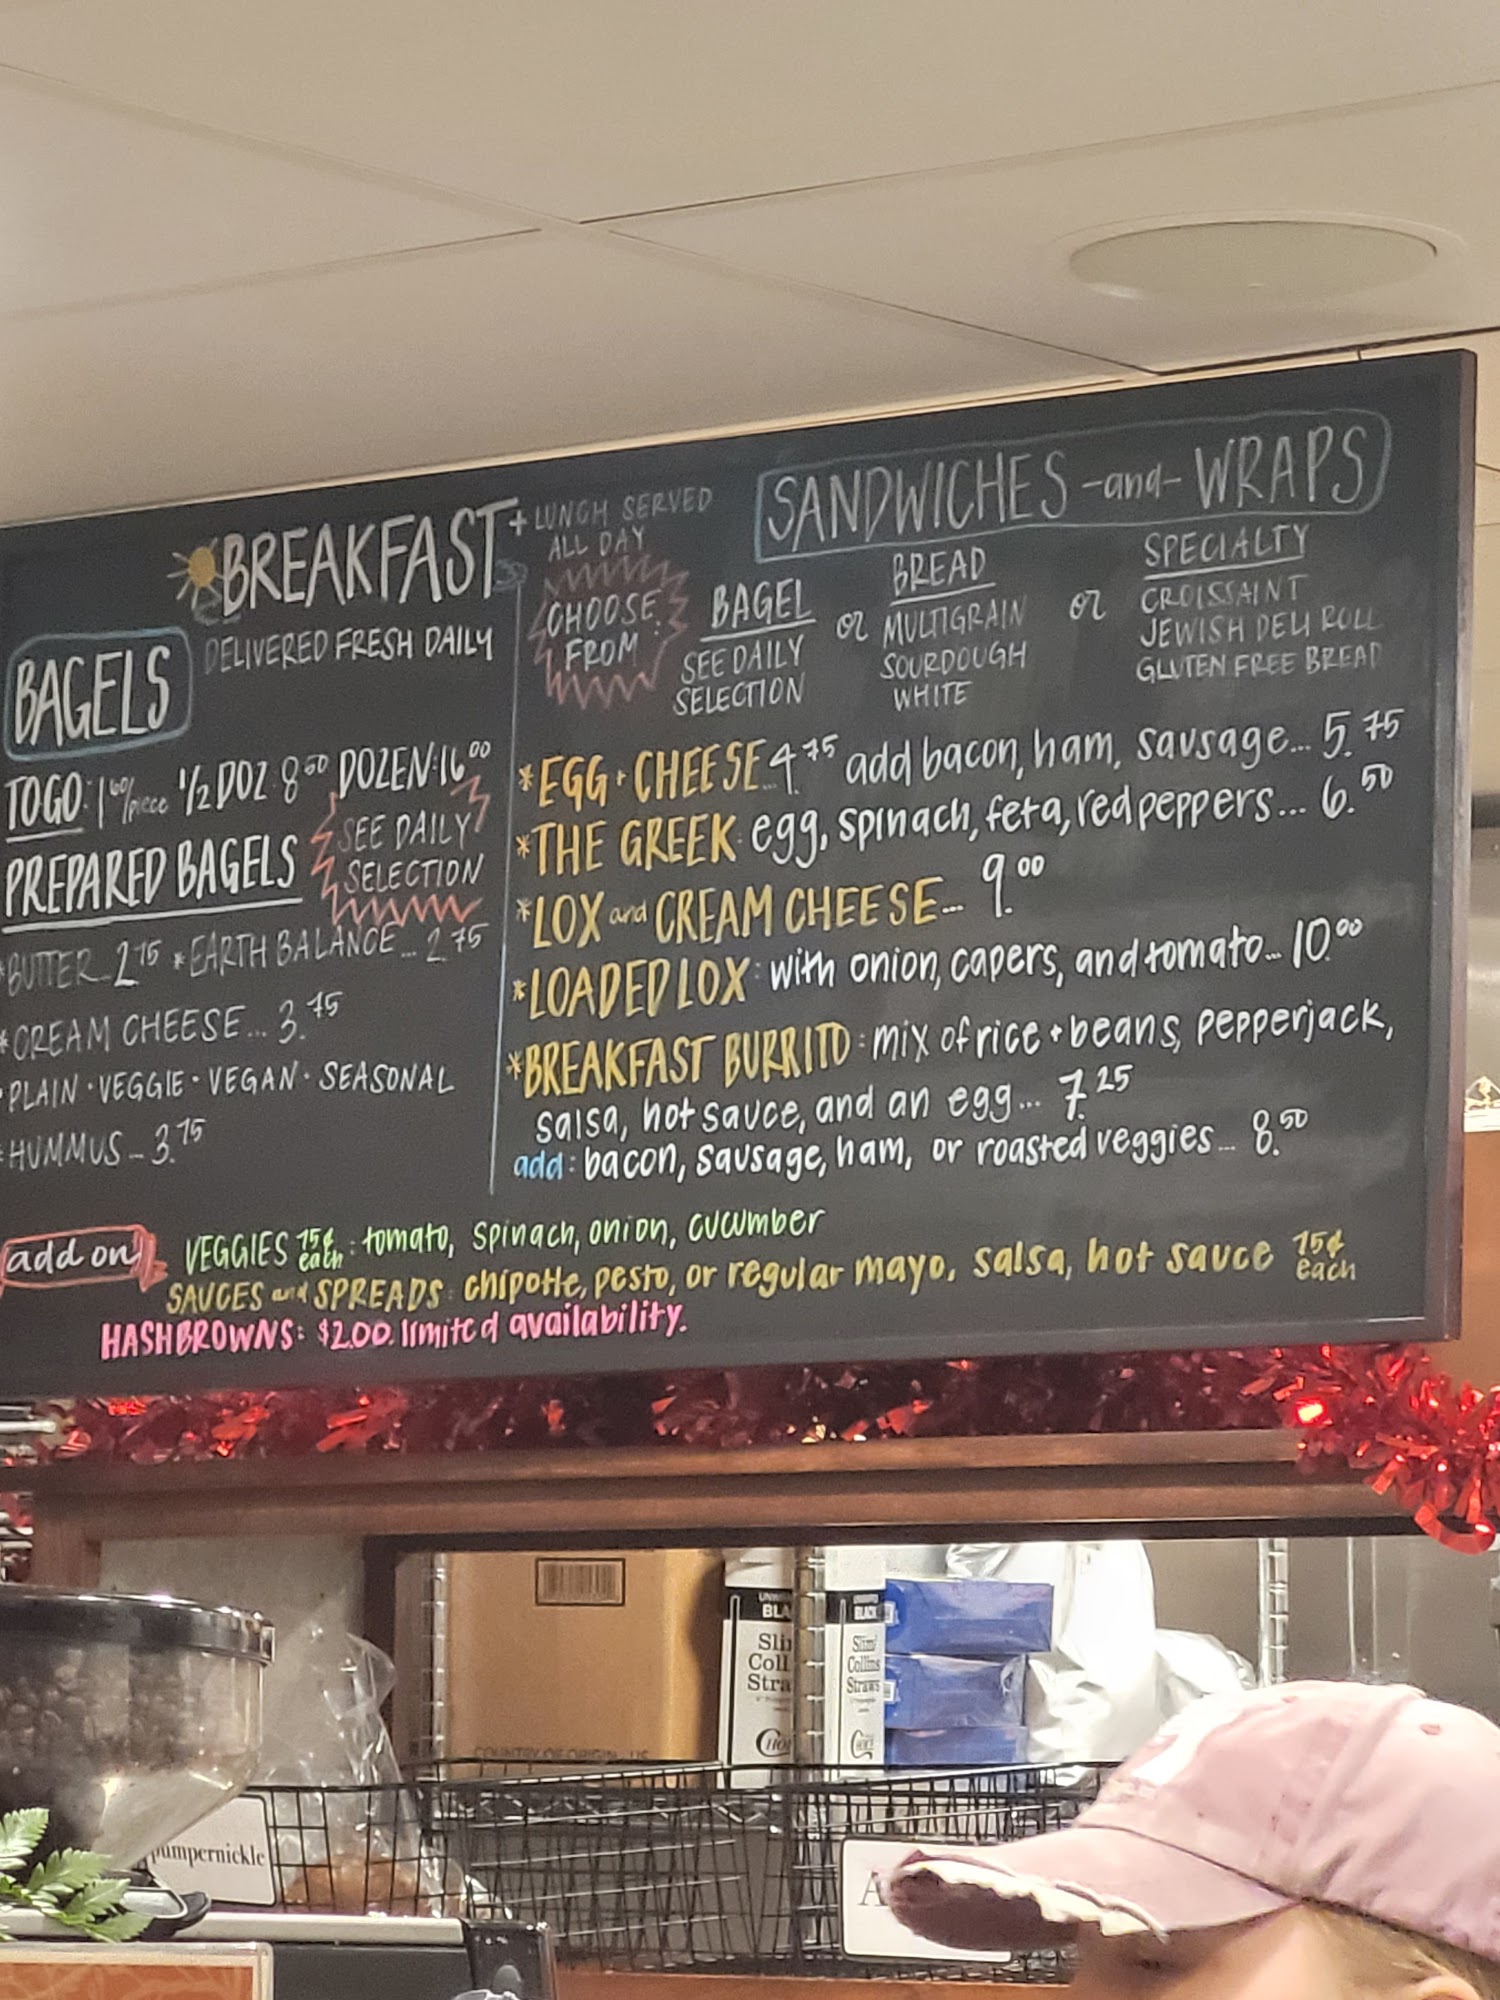 BREAKFAST + LUNCH SERVED
ALL DAY
BAGELS
DELIVERED FRESH DAILY
TOGO: 1⁶⁰/piece 1/2 DOZ 8⁵⁰ DOZEN: 16⁰⁰
PREPARED BAGELS
SEE DAILY
SELECTION
*BUTTER... 2.75 *EARTH BALANCE... 2.75
*CREAM CHEESE... 3.75
PLAIN · VEGGIE · VEGAN · SEASONAL
*HUMMUS... 3.75
SANDWICHES -and- WRAPS
CHOOSE
FROM:
BAGEL
SEE DAILY
SELECTION
or
BREAD
MULTIGRAIN
SOURDOUGH
WHITE
or
SPECIALTY
CROISSAINT
JEWISH DELI ROLL
GLUTEN FREE BREAD
*EGG + CHEESE... 4.75 add bacon, ham, sausage... 5.75
*THE GREEK: egg, spinach, feta, red peppers... 6.50
*LOX and CREAM CHEESE... 9.00
*LOADED LOX: with onion, capers, and tomato... 10.00
*BREAKFAST BURRITO: mix of rice + beans, pepperjack,
salsa, hot sauce, and an egg... 7.25
add: bacon, sausage, ham, or roasted veggies... 8.50
add on VEGGIES 75¢ each: tomato, spinach, onion, cucumber
SAUCES and SPREADS: chipotle, pesto, or regular mayo, salsa, hot sauce 75¢ each
HASHBROWNS: $2.00. limited availability.
BLACK
Slim/
Collins
Straws
COUNTRY OF ORIGIN
pumpernickle